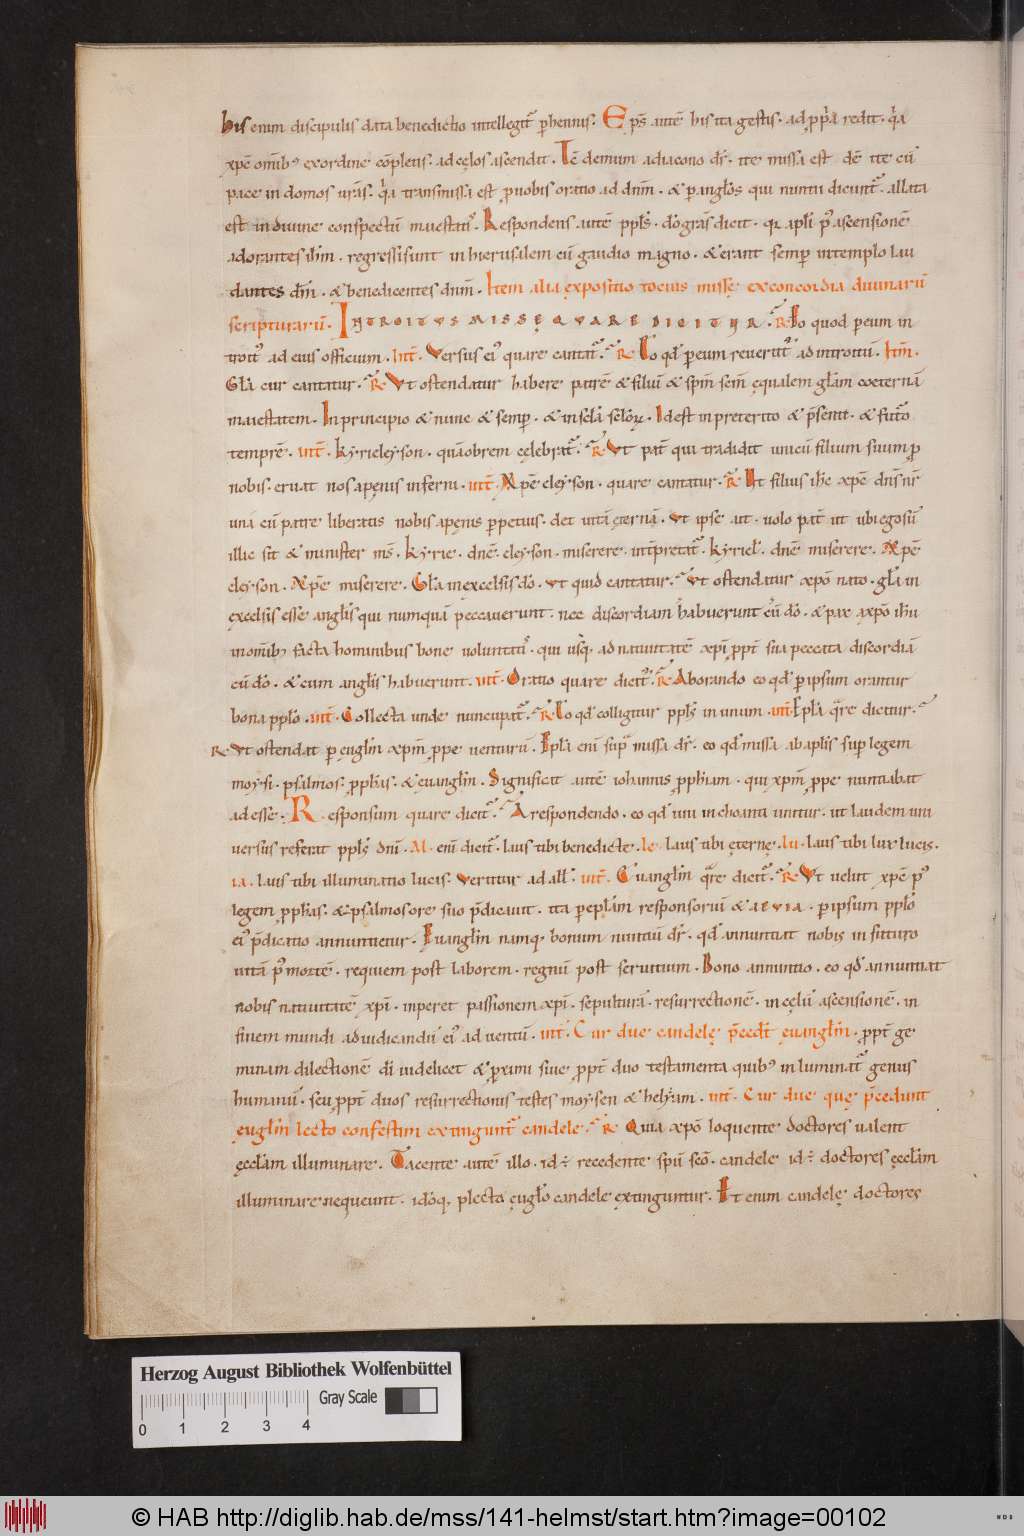 his enim discipulis data benedictio intellegit̄ p̄hennis. Ep̄s autē his ita gestis. ad ꝓp̄a redit. q̄a
xp̄c om̄ib; ex ordine cōpletis. ad cęlos ascendit. Tē demum a diacono dr̄. ite missa est dē ite cū
pace in domos ur̄as. q̄a transmissa est ꝓ uobis oratio ad dn̄m. & ꝑ angl̄os qui nuntii dicunt̄. allata
est in diuine conspectū maiestati. Respondens autē ppl̄s. dō grās dicit. q; apl̄i p̄ ascensionē
adorantes ih̄m. regressi sunt in hierusalem cū gaudio magno. & erant semꝑ in templo lau
dantes dm̄. & benedicentes dn̄m. Item alia expositio tocius missę ex concordia diuinarū
scripturarū. INTROITVS MISSĘ QVARE DICITVR. R̄ Eo quod ꝑ eum in
troit᷒ ad eius officium. Int̄. Versus ei᷒ quare cantat̄. R̄ Eo qd̄ ꝑ eum reuertit̄ ad introitū. Int̄.
Gl̄a cur cantatur. R̄ Vt ostendatur habere patrē & filiū & sp̄m sc̄m ęqualem gl̄am coeternā
maiestatem. In principio & nunc & semꝑ. & in sc̄la sc̄loꝝ. Id est in preterito & p̄senti. & futuro
tempre̅. int̄. kyrieleyson. quāobrem cęlebrat̄. R̄ Vt pat̄ qui tradidit unicū filium suum ꝓ
nobis. eruat nos a pęnis inferni. int̄. Xpē eleyson. quare cantatur. R̄ Vt filius ih̄c xp̄c dn̄s nr̄
una cū patre liberatis nobis a pęnis ꝑpetuis. det uitā ęternā. Vt ipse ait. uolo pat̄ ut ubi ego sū
illic sit & minister ms̄. kyrie. dn̄e. eleyson. miserere. int̄pretat̄. kyriel̄. dn̄e miserere. Xpē
eleyson. Xpē miserere. Gl̄a in excelsis dō. Vt quid cantatur. Vt ostendatur xp̄o nato. gl̄a in
excelsis esse anglis qui numquā peccauerunt. nec discordiam habuerunt cū dō. & pax a xp̄o ih̄u
in om̄ib; facta hominibus bone uoluntati. qui usq; ad natiuitatē xp̄i ꝓpt̄ sua peccata discordiā
cū dō. & cum anglis habuerunt. int̄. Oratio quare dicit̄. R̄ Aborando eo qd̄ ꝑ ipsum orantur
bona pplō. int̄. Collecta unde nuncupat̄. R̄ Eo qd̄ colligitur ppl̄s in unum. int̄. Epl̄a q̄re dicitur.
R̄ Vt ostendat ꝑ eugl̄m xp̄m ꝓpe uenturū. Epl̄a enī sup̄ missa dr̄. eo qd̄ missa ab apl̄is sup legem
moysi. psalmos. ꝓphās. & euangl̄m. Significit autē iohannis ꝓphiam. qui xp̄m ꝓpe nuntiabat
adesse. Responsum quare dicit̄. A respondendo. eo qd̄ uni inchoanti unitur. ut laudem uni
uersus referat ppl̄s dn̄i. Al. enī dicit̄. laus tibi benedicte. le. laus tibi ęterne. lu. laus tibi lux lucis.
ia. laus tibi illuminatio lucis. Vertitur ad all̄. int̄. Euangl̄m q̄re dicit̄. R̄ Vt uelut xp̄c p᷒
legem ꝓphās. & psalmos ore suo p̄dicauit. ita ꝑ epl̄am responsoriū & aevia. ꝑ ipsum pplō
ei᷒ p̄dicatio annuntietur. Euangl̄m namq; bonum nuntiū dr̄. qd̄ annuntiat nobis in futuro
uitā p᷒ mortē. requiem post laborem. regnū post seruitium. Bono annuntio. eo qd̄ annuntiat
nobis natiuitatē xp̄i. imperet passionem xp̄i. sepulturā. resurrectionē. in cęlū ascensionē. in
finem mundi ad iudicandū ei᷒ aduentū. int̄. Cur due candelę p̄cedt̄ euangl̄m. ꝓpt̄ ge
minam dilectionē dī uidelicet & ꝓximi siue ꝓpt̄ duo testamenta quib; inluminat̄ genus
humanū. seu ꝓpt̄ duos resurrectionis testes moysen & helyam. int̄. Cur due quę p̄cedunt
eugl̄m lecto confestim extingunt̄ candele. R̄ Quia xp̄o loquente doctores ualent
ęccl̄am illuminare. Tacente autē illo. id ÷ recedente sp̄u sc̄o. candele id ÷ doctores ęccl̄am
illuminare nequeunt. idōq; plecta ęuglō candele extinguntur. It enim candelę doctores
Herzog August Bibliothek Wolfenbüttel
Gray Scale
0 1 2 3 4
© HAB http://diglib.hab.de/mss/141-helmst/start.htm?image=00102